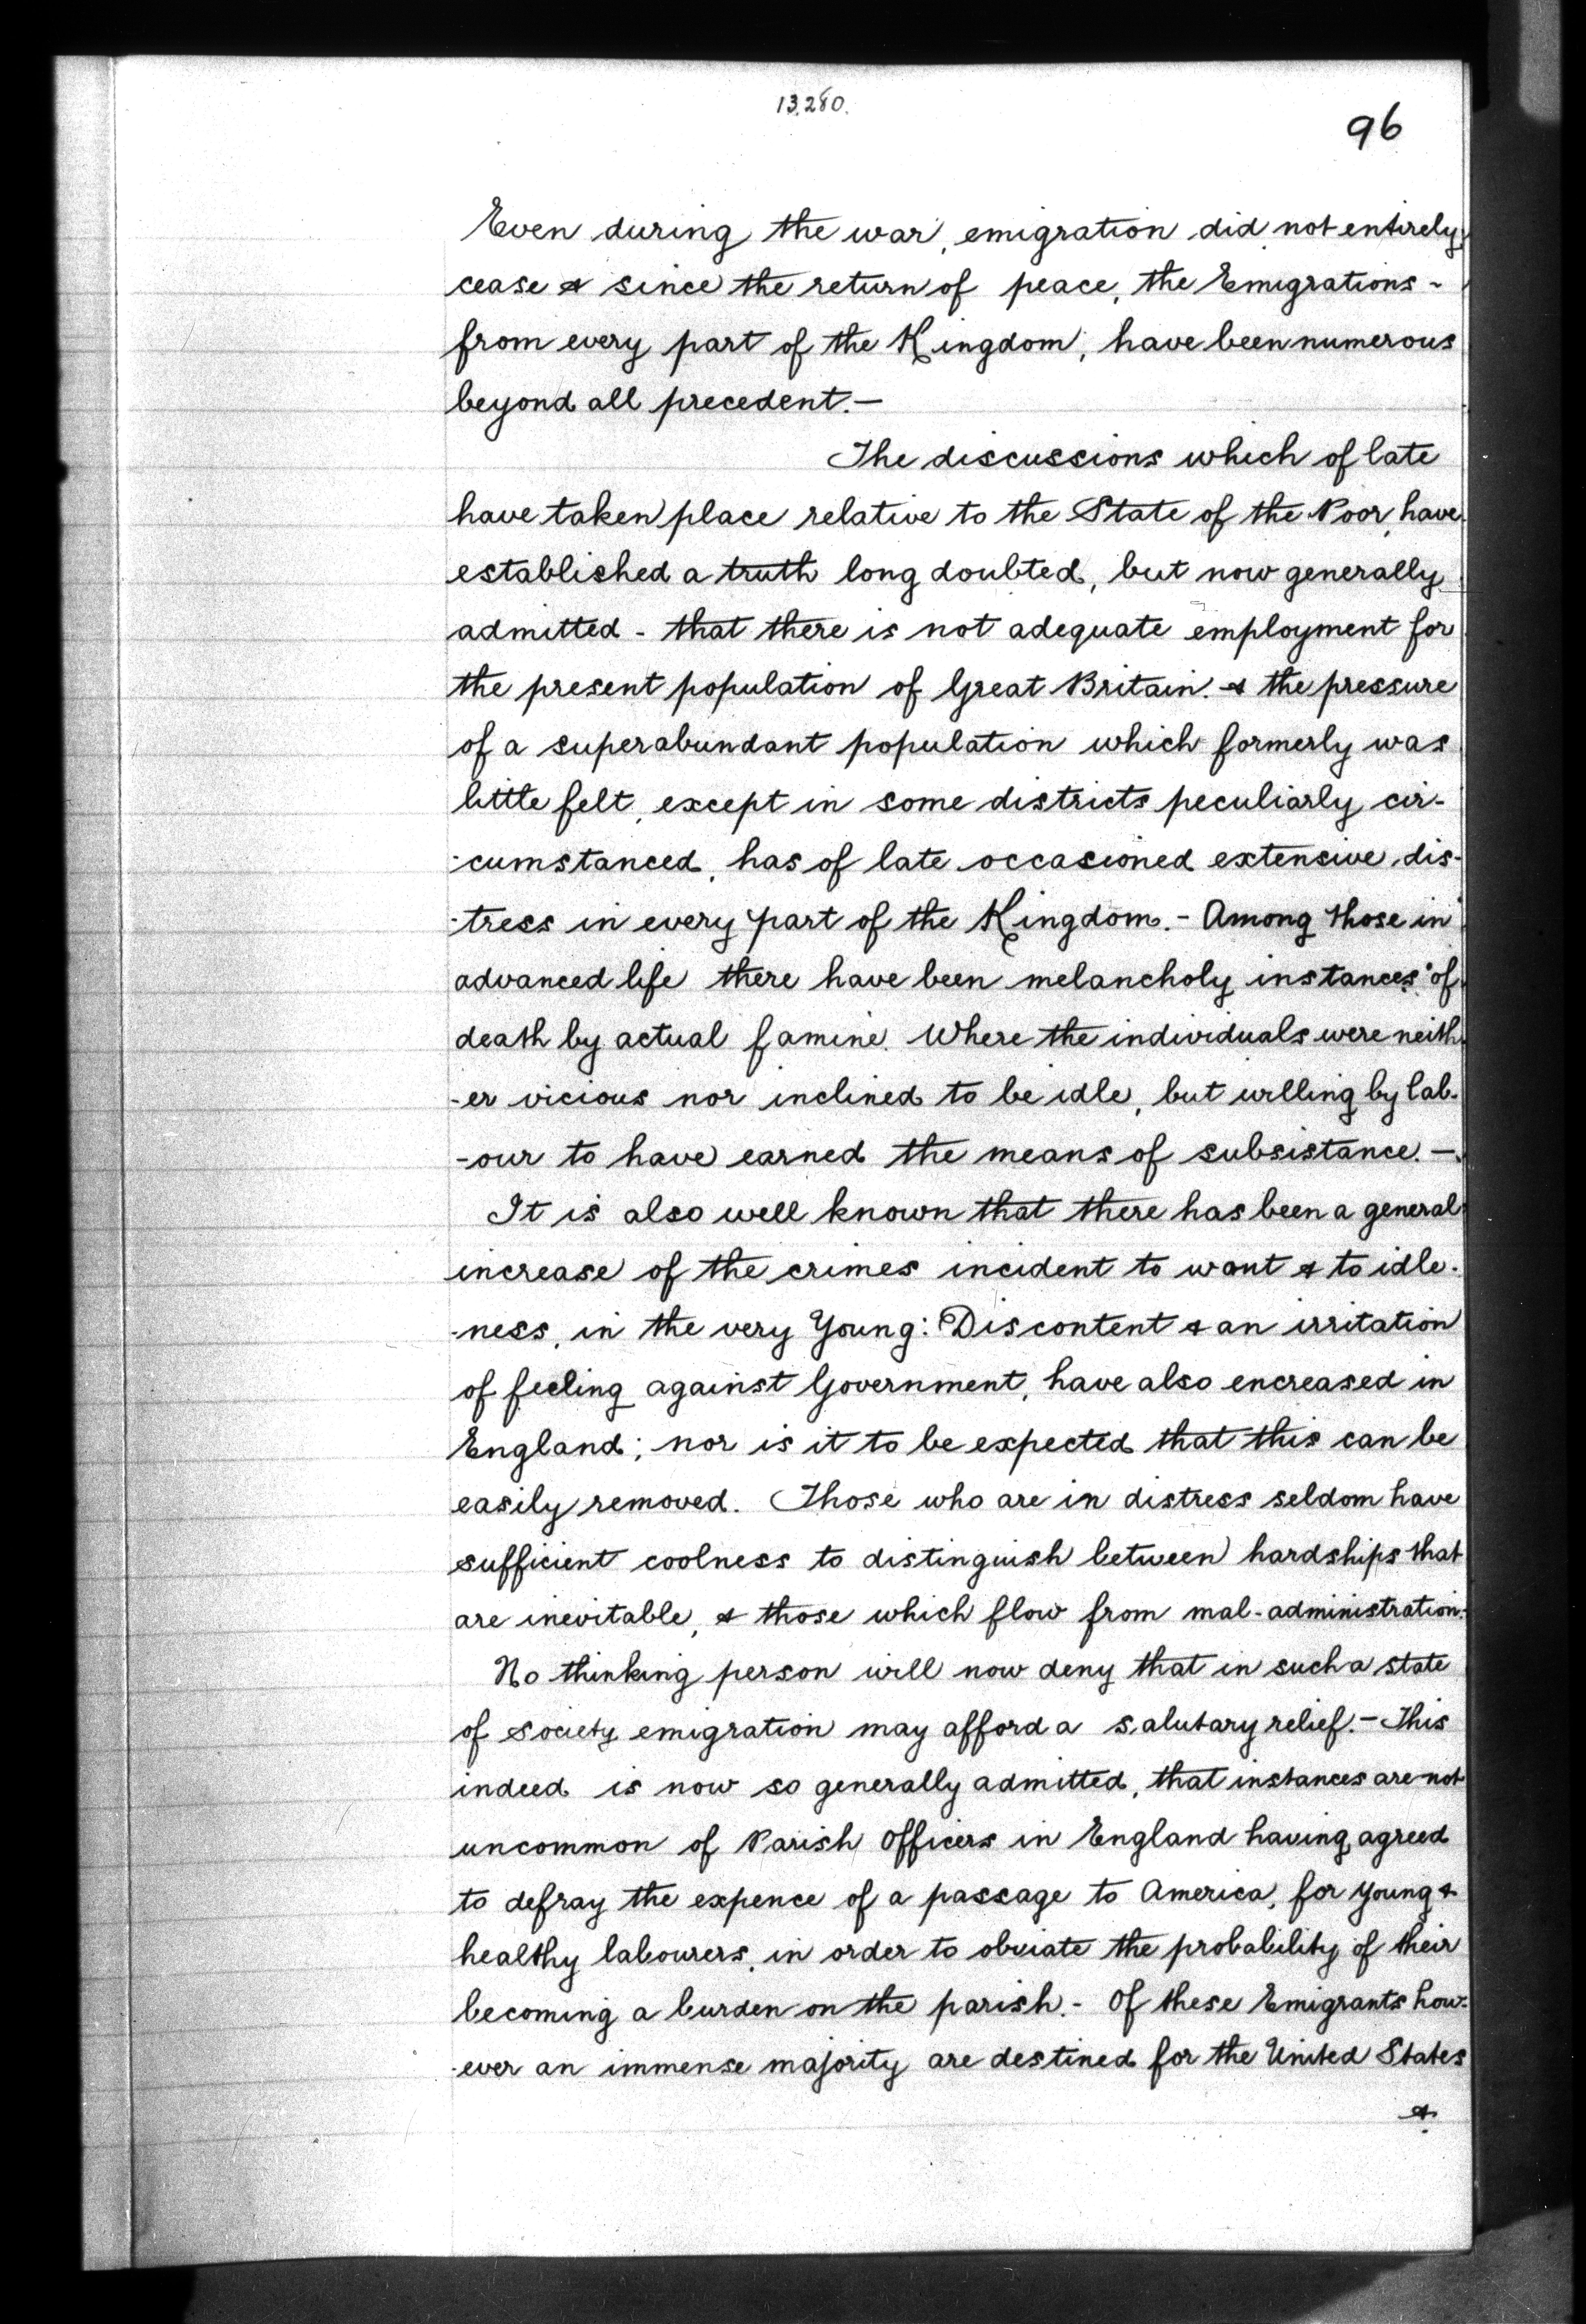 13,280.
96
Even during the war, emigration did not entirely
cease & since the return of peace, the Emigrations -
from every part of the Kingdom, have been numerous
beyond all precedent. —
The discussions which of late
have taken place relative to the State of the Poor, have
established a truth long doubted, but now generally
admitted - that there is not adequate employment for
the present population of Great Britain. & the pressure
of a superabundant population which formerly was
little felt, except in some districts peculiarly cir-
-cumstanced, has of late occasioned extensive dis-
-tress in every part of the Kingdom. - Among those in
advanced life there have been melancholy instances of
death by actual famine. Where the individuals were neith
-er vicious nor inclined to be idle, but willing by lab-
-our to have earned the means of subsistance. —
It is also well known that there has been a general
increase of the crimes incident to want & to idle-
-ness, in the very Young: Discontent & an irritation
of feeling against Government, have also encreased in
England; nor is it to be expected that this can be
easily removed. Those who are in distress seldom have
sufficient coolness to distinguish between hardships that
are inevitable, & those which flow from mal-administration.
No thinking person will now deny that in such a state
of society emigration may afford a salutary relief. - This
indeed is now so generally admitted, that instances are not
uncommon of Parish Officers in England having agreed
to defray the expence of a passage to America, for young &
healthy labourers, in order to obviate the probability of their
becoming a burden on the parish. - Of these Emigrants how-
-ever an immense majority are destined for the United States
&